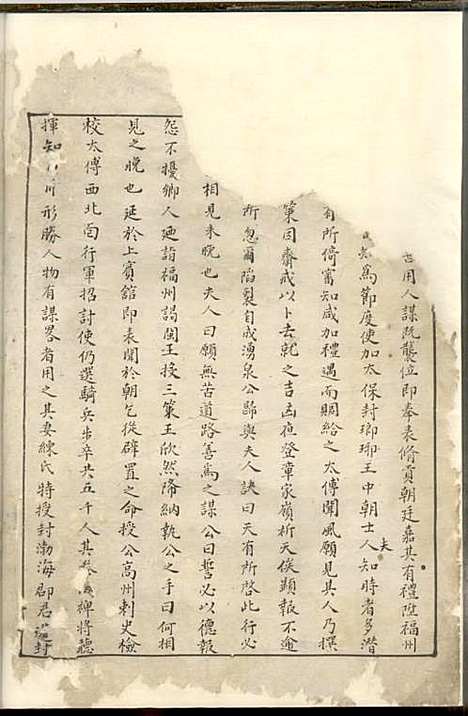 用人謀既襲位即奉表脩貢朝廷嘉其有禮陞福州
知爲節度使加太保封瑯琊王中朝士夫人知時者多潛
有所倚審知咸加禮遇而賙給之太傅聞風願見其人乃撰
策因齋戒以卜去就之吉凶夜登章家嶺祈天俟顯報不逾
所忽爾陷裂自成湧泉公歸與夫人訣曰天有所啓此行必
相見未晚也夫人曰願無苦道路善爲之謀公曰誓必以德報
怨不擾鄉人迺詣福州謁閩王授三策王欣然降納執公之手曰何相
見之晚也延於上賓舘即表聞於朝乞授辟置之命授公高州刺史檢
校太傅西北面行軍招討使仍選騎兵步卒共五千人其裨將聽
揮知形勝人物有謀畧者用之其妻練氏特授封渤海郡君